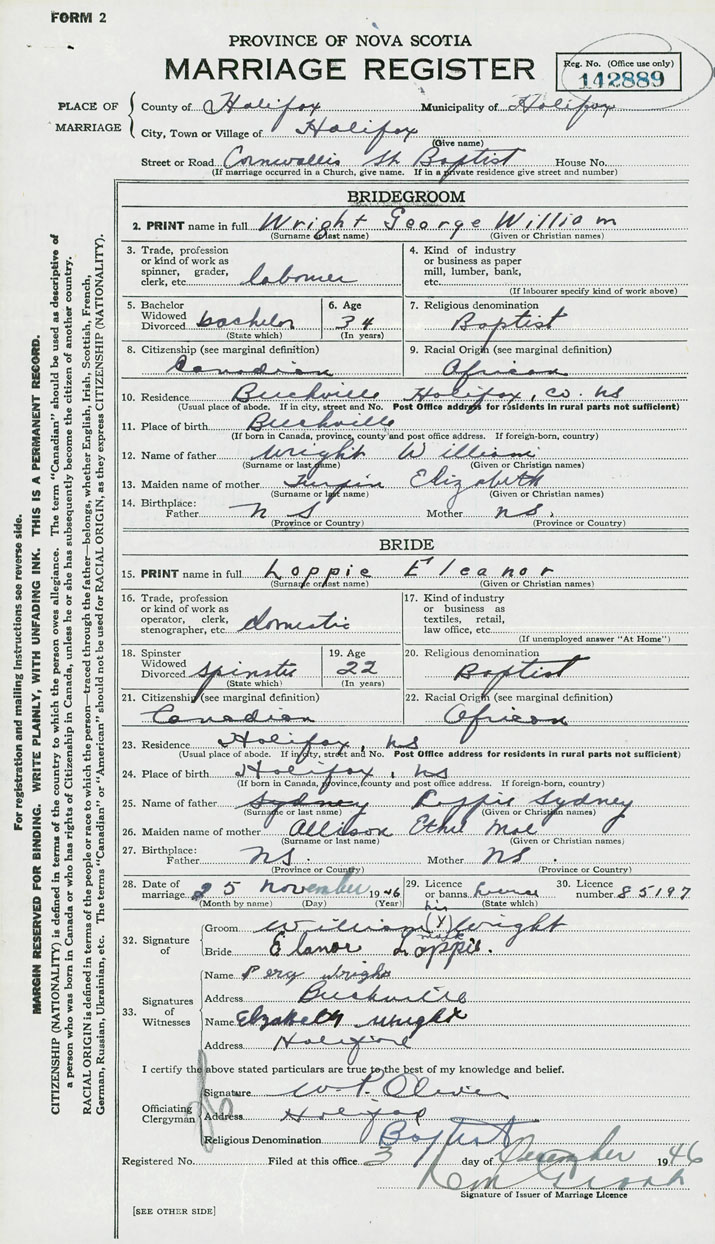 FORM 2
PROVINCE OF NOVA SCOTIA
MARRIAGE REGISTER
Reg. No. (Office use only)
142889
PLACE OF MARRIAGE
County of Halifax Municipality of Halifax
City, Town or Village of Halifax
(Give name)
Street or Road Cornwallis St Baptist House No.
(If marriage occurred in a Church, give name. If in a private residence give street and number)
BRIDEGROOM
2. PRINT name in full Wright George William
(Surname or last name) (Given or Christian names)
3. Trade, profession or kind of work as spinner, grader, clerk, etc. labourer
4. Kind of industry or business as paper mill, lumber, bank, etc.
(If labourer specify kind of work above)
5. Bachelor Widowed Divorced bachelor
(State which)
6. Age 34
(In years)
7. Religious denomination
Baptist
8. Citizenship (see marginal definition)
Canadian
9. Racial Origin (see marginal definition)
African
10. Residence Beechville Halifax, Co. NS
(Usual place of abode. If in city, street and No. Post Office address for residents in rural parts not sufficient)
11. Place of birth Beechville
(If born in Canada, province, county and post office address. If foreign-born, country)
12. Name of father Wright William
(Surname or last name) (Given or Christian names)
13. Maiden name of mother Turpin Elizabeth
(Surname or last name) (Given or Christian names)
14. Birthplace:
Father NS Mother NS.
(Province or Country) (Province or Country)
BRIDE
15. PRINT name in full Loppie Eleanor
(Surname or last name) (Given or Christian names)
16. Trade, profession or kind of work as operator, clerk, stenographer, etc. domestic
17. Kind of industry or business as textiles, retail, law office, etc.
(If unemployed answer "At Home")
18. Spinster Widowed Divorced Spinster
(State which)
19. Age 22
(In years)
20. Religious denomination
Baptist
21. Citizenship (see marginal definition)
Canadian
22. Racial Origin (see marginal definition)
African
23. Residence Halifax, NS
(Usual place of abode. If in city, street and No. Post Office address for residents in rural parts not sufficient)
24. Place of birth Halifax, NS
(If born in Canada, province, county and post office address. If foreign-born, country)
25. Name of father Sydney Loppie Sydney
(Surname or last name) (Given or Christian names)
26. Maiden name of mother Allison Ethel Mae
(Surname or last name) (Given or Christian names)
27. Birthplace:
Father NS. Mother NS.
(Province or Country) (Province or Country)
28. Date of marriage 25 November 1946
(Month by name) (Day) (Year)
29. Licence or banns license
(State which)
30. Licence number 85197
32. Signature of
Groom William his (X) mark Wright
Bride Elanor Loppie.
33. Signatures of Witnesses
Name Percy Wright
Address Beechville
Name Elizabeth Wright
Address Halifax
I certify the above stated particulars are true to the best of my knowledge and belief.
Officiating Clergyman
Signature W. P. Oliver
Address Halifax
Religious Denomination Baptist
Registered No. Filed at this office 3 day of December 1946
Signature of Issuer of Marriage Licence
[SEE OTHER SIDE]
For registration and mailing instructions see reverse side.
MARGIN RESERVED FOR BINDING. WRITE PLAINLY, WITH UNFADING INK. THIS IS A PERMANENT RECORD.
CITIZENSHIP (NATIONALITY) is defined in terms of the country to which the person owes allegiance. The term "Canadian" should be used as descriptive of
a person who was born in Canada or who has rights of Citizenship in Canada, unless he or she has subsequently become the citizen of another country.
RACIAL ORIGIN is defined in terms of the people or race to which the person—traced through the father—belongs, whether English, Irish, Scottish, French,
German, Russian, Ukrainian, etc. The terms "Canadian" or "American" should not be used for RACIAL ORIGIN, as they express CITIZENSHIP (NATIONALITY).